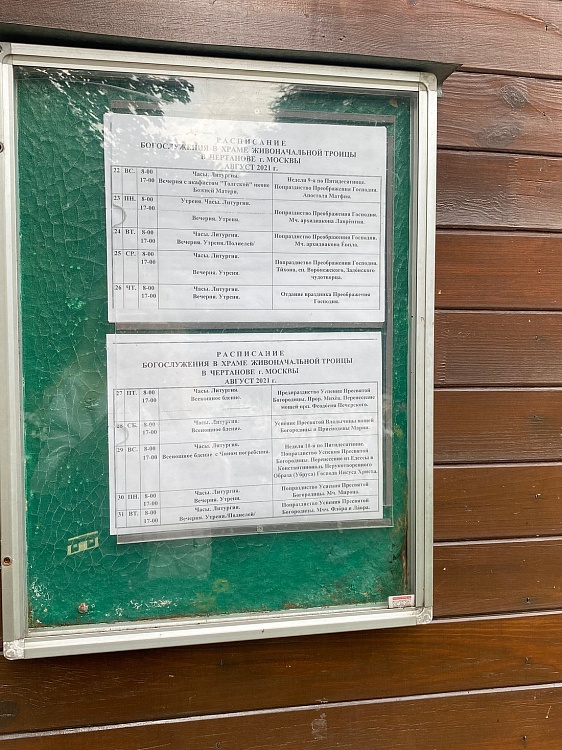 РАСПИСАНИЕ
БОГОСЛУЖЕНИЯ В ХРАМЕ ЖИВОНАЧАЛЬНОЙ ТРОИЦЫ
В ЧЕРТАНОВЕ г. МОСКВЫ
АВГУСТ 2021 г.
22 ВС. 8-00 Часы. Литургия. Неделя 9-я по Пятидесятнице.
17-00 Вечерня с акафистом "Толгской" иконе Попразднство Преображения Господня.
Божией Матери. Апостола Матфия.
23 ПН. 8-00 Утреня. Часы. Литургия.
17-00 Попразднство Преображения Господня.
Вечерня. Утреня. Мч. архидиакона Лаврентия.
24 ВТ. 8-00 Часы. Литургия. Попразднство Преображения Господня.
17-00 Вечерня. Утреня/Полиелей/ Мч. архидиакона Евпла.
25 СР. 8-00 Часы. Литургия.
17-00 Попразднство Преображения Господня.
Вечерня. Утреня. Тихона, еп. Воронежского, Задонского
чудотворца.
26 ЧТ. 8-00 Часы. Литургия. Отдание праздника Преображения
17-00 Вечерня. Утреня. Господня.
РАСПИСАНИЕ
БОГОСЛУЖЕНИЯ В ХРАМЕ ЖИВОНАЧАЛЬНОЙ ТРОИЦЫ
В ЧЕРТАНОВЕ г. МОСКВЫ
АВГУСТ 2021 г.
27 ПТ. 8-00 Часы. Литургия. Предпразднство Успения Пресвятой
17-00 Всенощное бдение. Богородицы. Прор. Михея. Перенесение
мощей прп. Феодосия Печерского.
28 СБ. 8-00 Часы. Литургия. Успение Пресвятой Владычицы нашей
17-00 Всенощное бдение. Богородицы и Приснодевы Марии.
29 ВС. 8-00 Часы. Литургия. Неделя 10-я по Пятидесятнице.
17-00 Всенощное бдение с Чином погребения. Попразднство Успения Пресвятой
Богородицы. Перенесение из Едессы в
Константинополь Нерукотворенного
Образа (Убруса) Господа Иисуса Христа.
30 ПН. 8-00 Часы. Литургия. Попразднство Успения Пресвятой
17-00 Вечерня. Утреня. Богородицы. Мч. Мирона.
31 ВТ. 8-00 Часы. Литургия. Попразднство Успения Пресвятой
17-00 Вечерня. Утреня/Полиелей/ Богородицы. Мчч. Флора и Лавра.